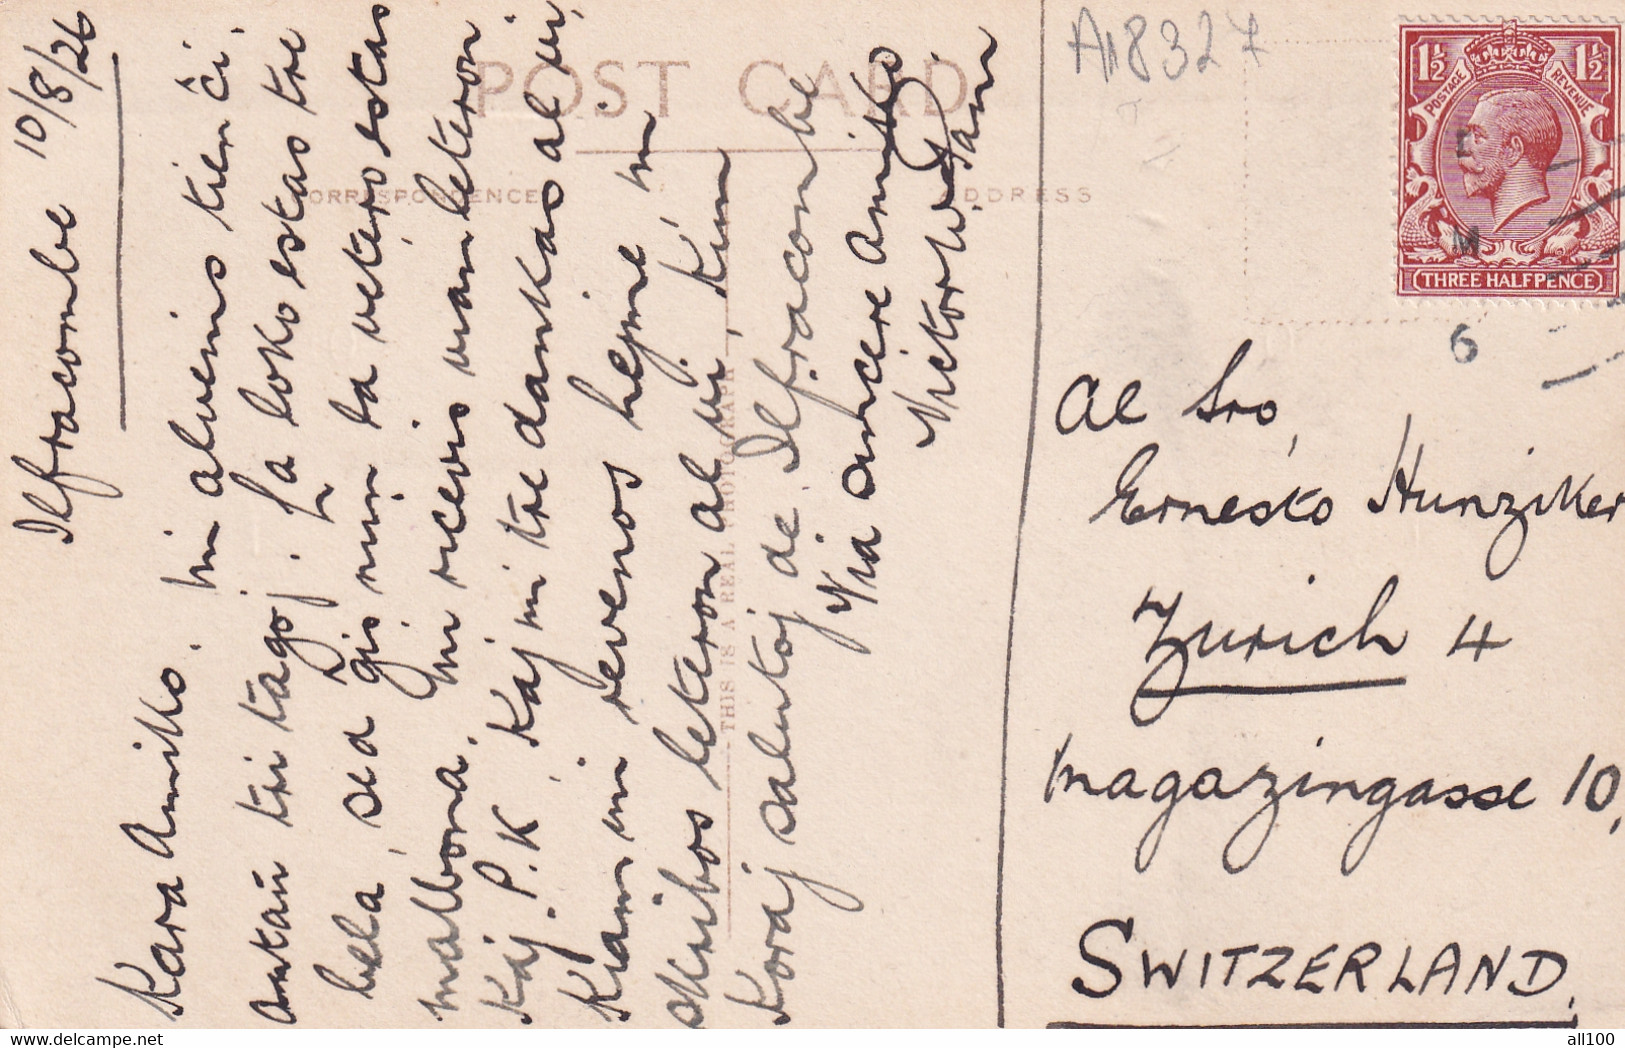 Ilfracombe 10/8/26
Kara Amiko. Mi alvenis tien ĉi,
antaŭ tri tagoj. La loko estas tre
bela, sed ĝis nun la vetero estas
malbona. Mi ricevis vian leteron
kaj P.K, kaj mi tre dankas al vi,
Kiam mi revenos hejme, mi
skribos leteron al vi, Kun
Koraj salutoj de Ilfracombe
Via sincere Amiko
Victor W.
POST CARD
CORRESPONDENCE
ADDRESS
THIS IS A REAL PHOTOGRAPH
A18327
POSTAGE REVENUE
1½ 1½
THREE HALFPENCE
M
6
Al Sro,
Ernesto Hunziker
Zurich 4
Magazingasse 10,
SWITZERLAND.
all100